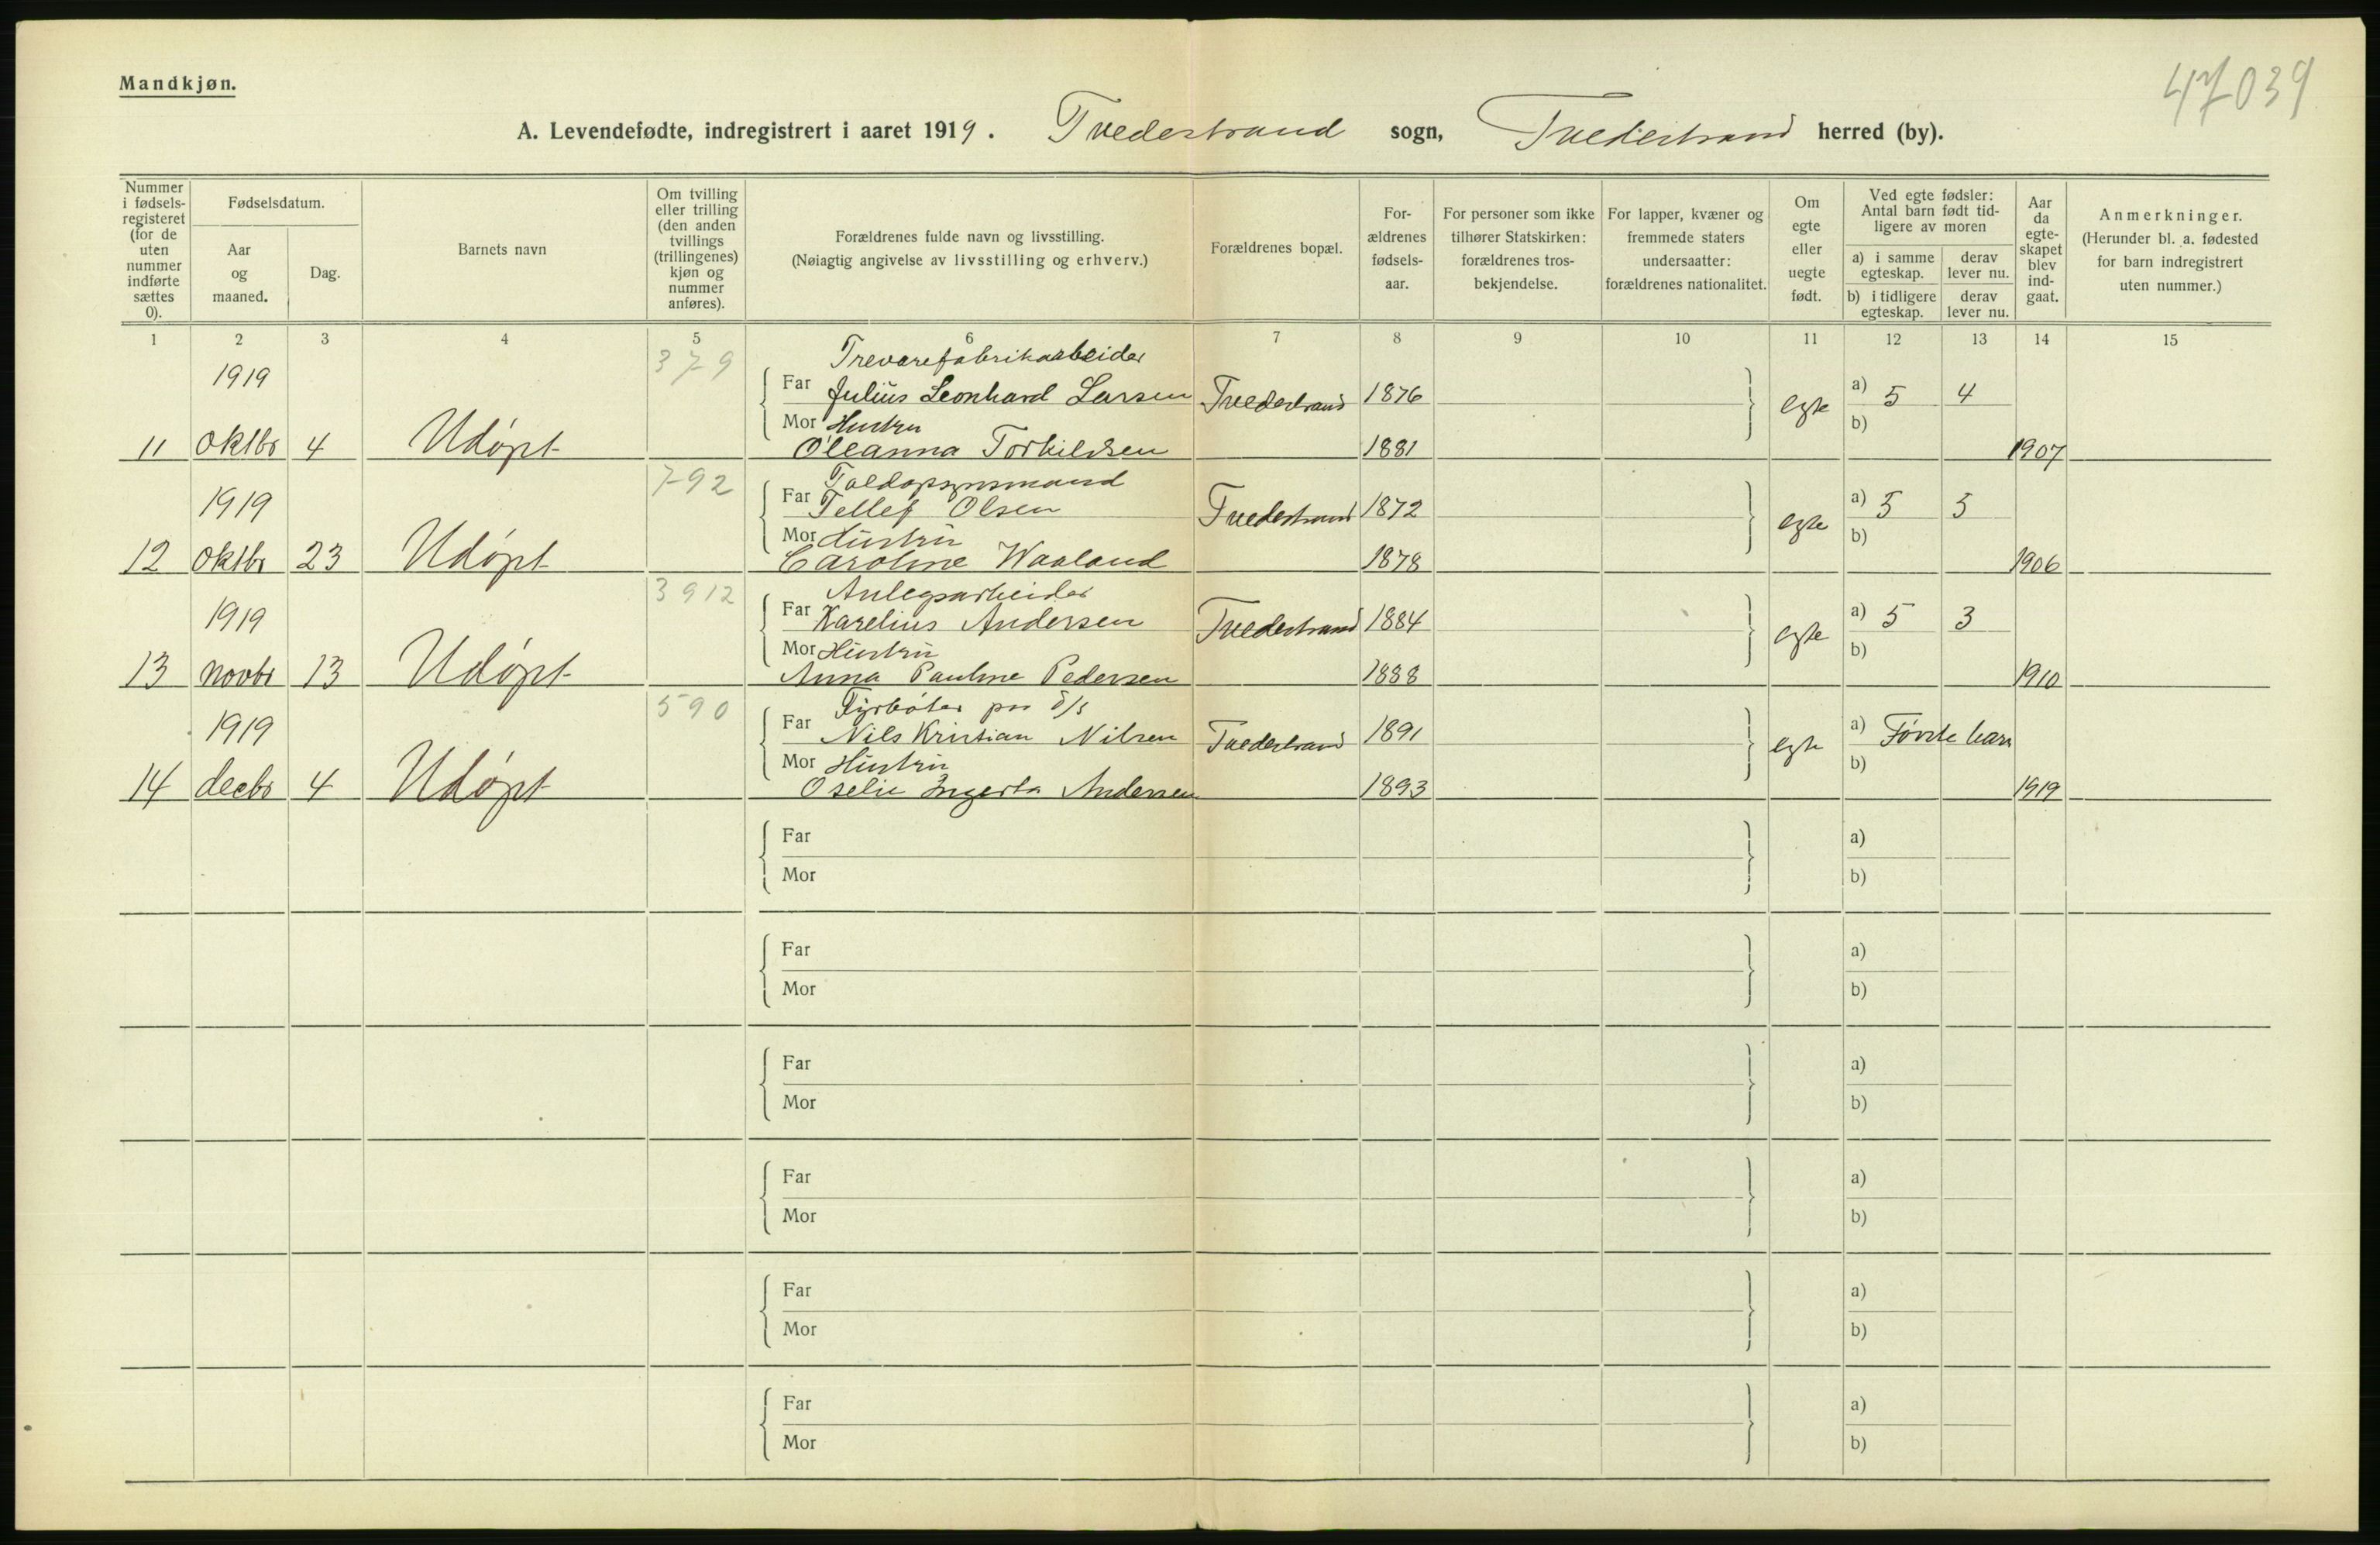 Mandkjøn.
47039
A. Levendefødte, indregistrert i aaret 1919. Tvedestrand sogn, Tvedestrand herred (by).
Nummer i fødsels-registeret (for de uten nummer indførte sættes 0).
Fødselsdatum.
Aar og maaned.
Dag.
Barnets navn
Om tvilling eller trilling (den anden tvillings (trillingenes) kjøn og nummer anføres).
Forældrenes fulde navn og livsstilling.
(Nøiagtig angivelse av livsstilling og erhverv.)
Forældrenes bopæl.
For-ældrenes fødsels-aar.
For personer som ikke tilhører Statskirken: forældrenes tros-bekjendelse.
For lapper, kvæner og fremmede staters undersaatter: forældrenes nationalitet.
Om egte eller uegte født.
Ved egte fødsler: Antal barn født tid-ligere av moren
a) i samme egteskap.
derav lever nu.
b) i tidligere egteskap.
derav lever nu.
Aar da egte-skapet blev ind-gaat.
Anmerkninger.
(Herunder bl. a. fødested for barn indregistrert uten nummer.)
1 2 3 4 5 6 7 8 9 10 11 12 13 14 15
379 Trevarefabrikarbeider
1919 Far Julius Leonhard Larsen Tvedestrand 1876 egte a) 5 4
Mor Hustru b)
11 oktbr 4 Udøpt Oleanna Torkildsen 1881 1907
792 Toldopsynsmand
1919 Far Tellef Olsen Tvedestrand 1872 egte a) 5 5
Mor Hustru b)
12 oktbr 23 Udøpt Caroline Waaland 1878 1906
3912 Anlegsarbeider
1919 Far Karelius Andersen Tvedestrand 1884 egte a) 5 3
Mor Hustru b)
13 novbr 13 Udøpt Anna Pauline Pedersen 1888 1910
590 Fyrbøter paa d/s
1919 Far Nils Kristian Nilsen Tvedestrand 1891 egte a) Første barn
Mor Hustru b)
14 decbr 4 Udøpt Oselie Ingerta Andersen 1893 1919
Far a)
Mor b)
Far a)
Mor b)
Far a)
Mor b)
Far a)
Mor b)
Far a)
Mor b)
Far a)
Mor b)